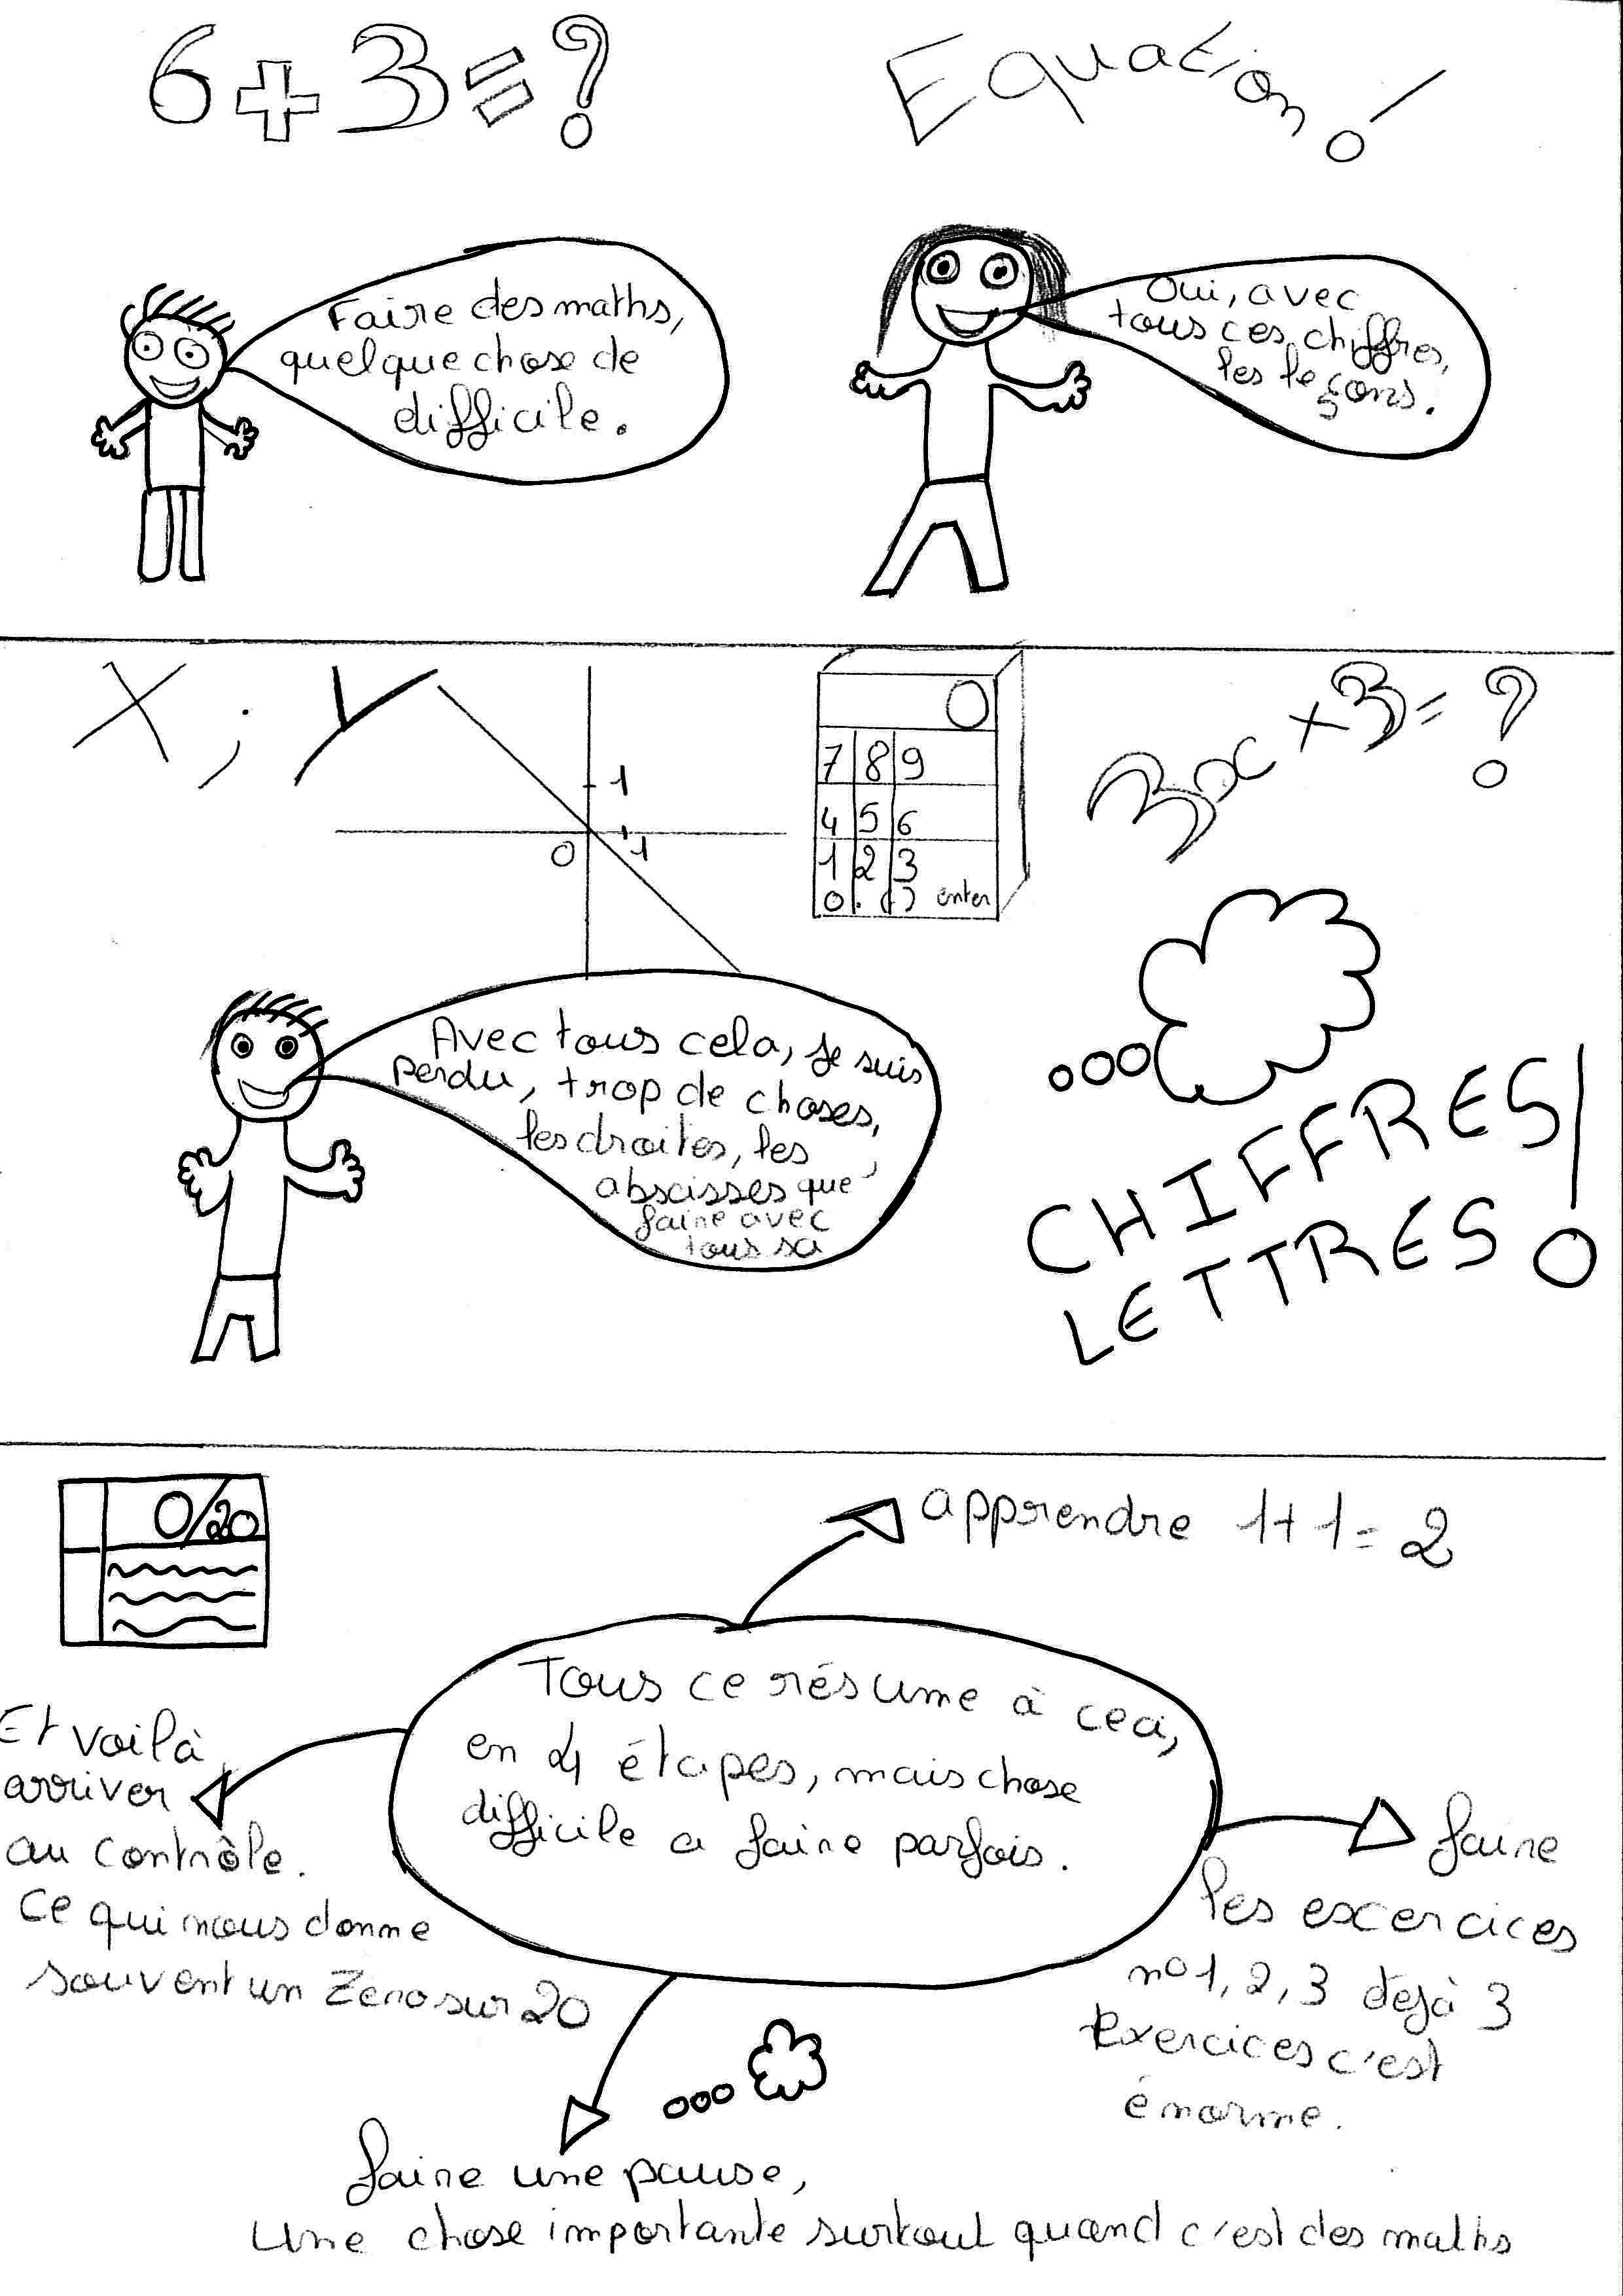 6+3=?
Equation!
Faire des maths,
quelque chose de
difficile.
Oui, avec
tous ces chiffres,
les leçons.
X ; Y
1
0 1
0
7 8 9
4 5 6
1 2 3
0 . (-) enter
3x+3=?
Avec tous cela, je suis
perdu, trop de choses,
les droites, les
abscisses que
faire avec
tous sa
CHIFFRES
LETTRES!
0/20
apprendre 1+1=2
Tous ce résume à ceci,
en 4 étapes, mais chose
difficile a faire parfois.
Et voilà
arriver
au contrôle.
Ce qui nous donne
souvent un Zero sur 20
faire
les excercices
n°1, 2, 3 dejà 3
Exercices c'est
énorme.
faire une pause,
Une chose importante surtout quand c'est des maths